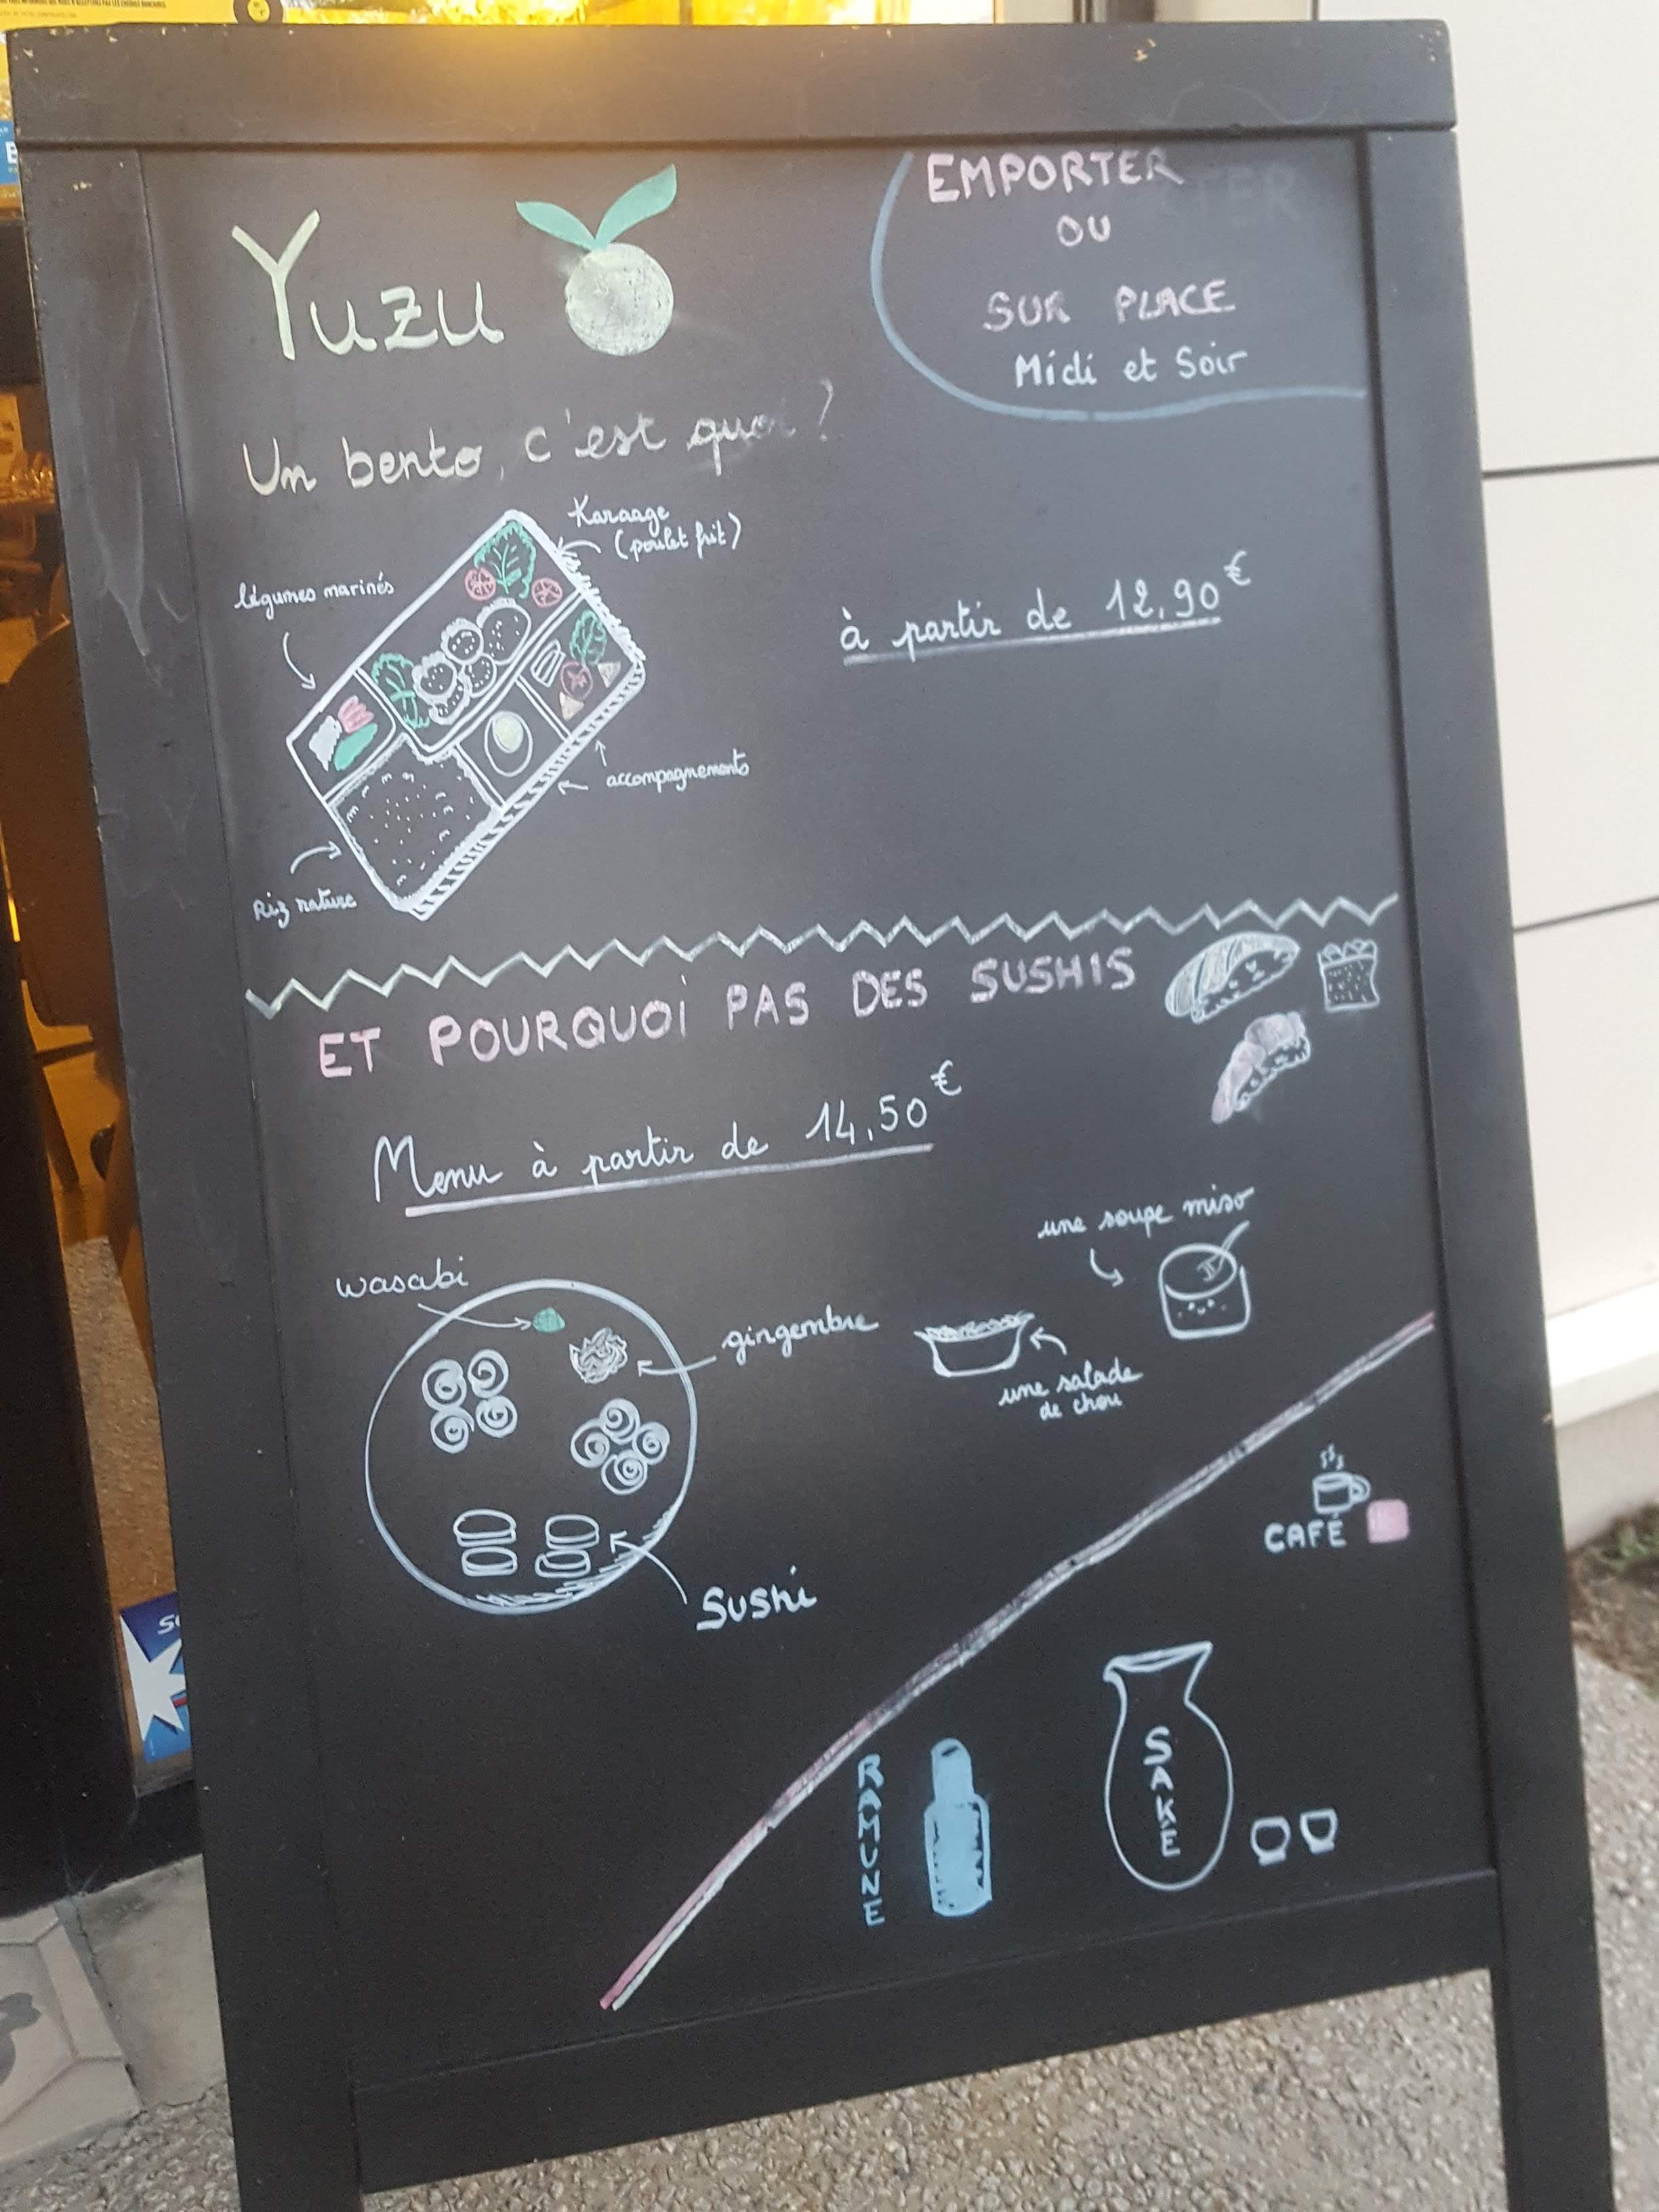 Yuzu
EMPORTER
OU
SUR PLACE
Midi et Soir
Un bento, c'est quoi ?
Karaage
(poulet frit)
légumes marinés
à partir de 12,90€
accompagnements
Riz nature
ET POURQUOI PAS DES SUSHIS
Menu à partir de 14,50€
une soupe miso
wasabi
gingembre
une salade
de chou
CAFÉ
Sushi
SAKÉ
RAMUNE